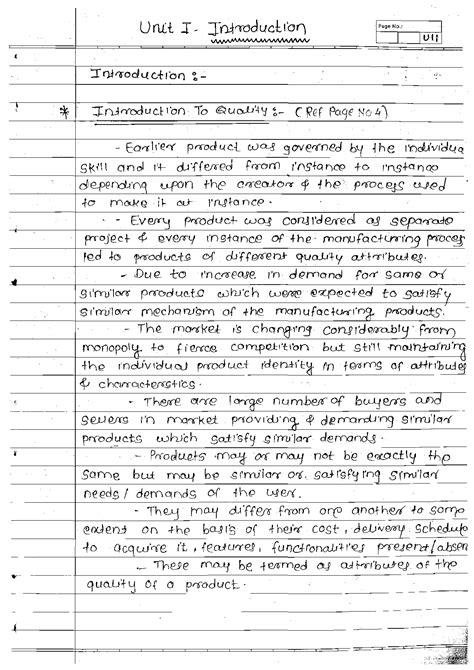 Unit I - Introduction
Page No.:
U11
Introduction :-
* Introduction To Quality :- (Ref Page No 4)
- Earlier product was governed by the individua
skill and it differed from instance to instance
depending upon the creator & the process used
to make it at instance.
- Every product was considered as separate
project & every instance of the manufacturing proces
led to products of different quality attributes.
- Due to increase in demand for same or
similar products which were expected to satisfy
similar mechanism of the manufacturing products.
- The market is changing considerably from
monopoly to fierce competition but still maintaining
the individual product identity in terms of attributes
& characteristics.
- There are large number of buyers and
sellers in market providing & demanding similar
products which satisfy similar demands.
- Products may or may not be exactly the
same but may be similar or satisfying similar
needs / demands of the user.
- They may differ from one another to some
extent on the basis of their cost, delivery schedule
to acquire it, features, functionalities present/absen
- These may be termed as attributes of the
quality of a product.